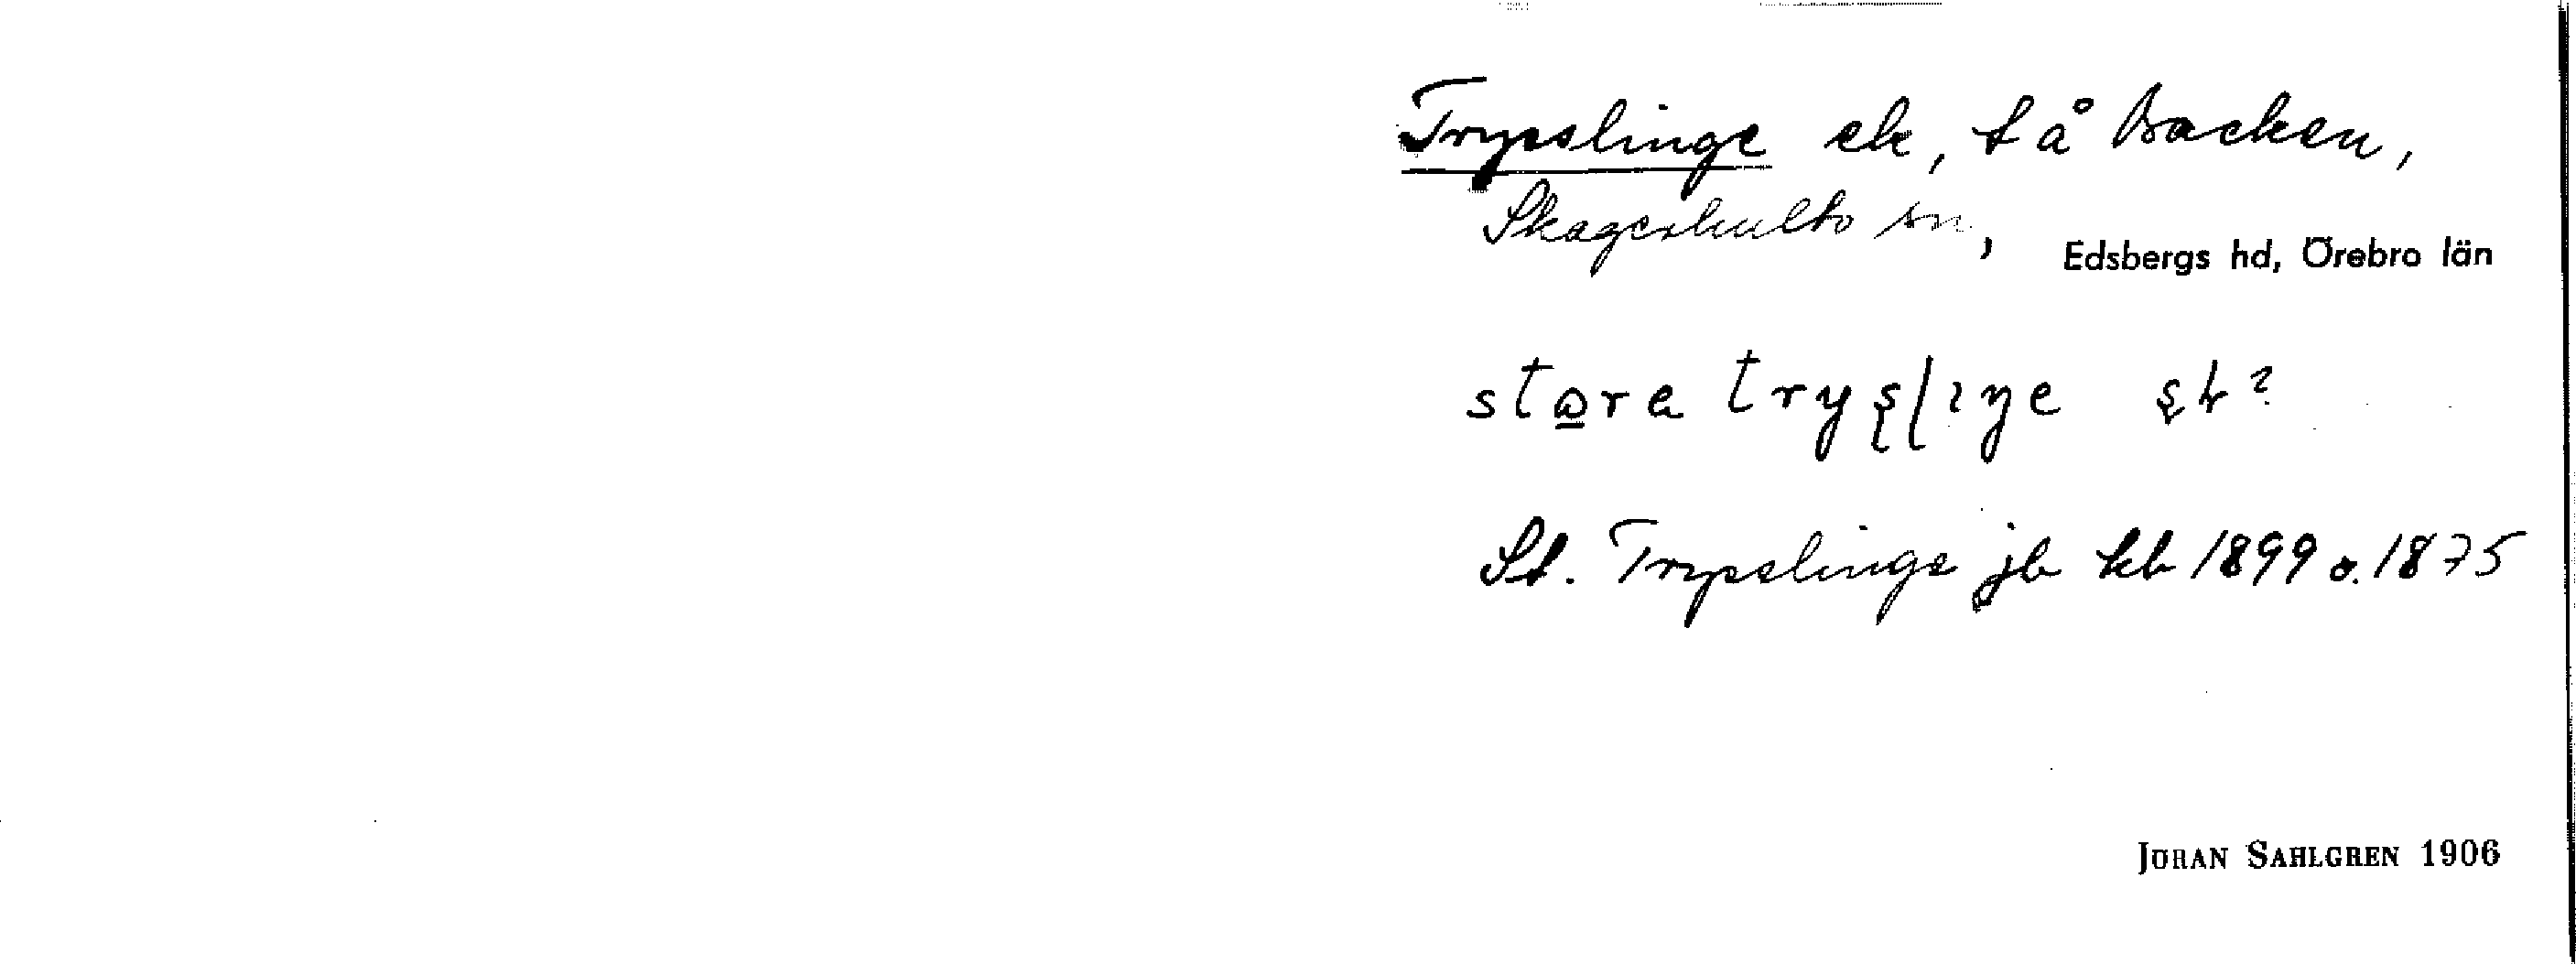 Trypslinge ek, få Backen,
Skagershults sn, Edsbergs hd, Örebro län
store tryslıŋe
St. Trypslinge jb kb 1899 o. 1875
JÖRAN SAHLGREN 1906